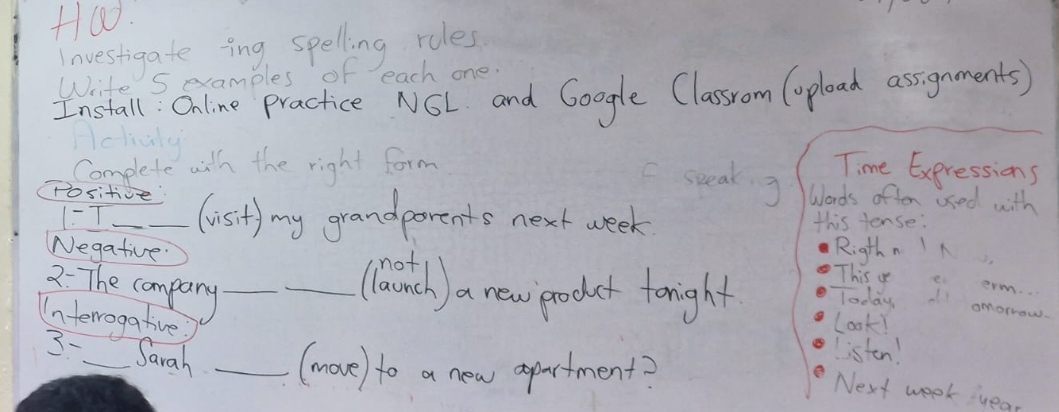 HW.
Investigate -ing spelling rules.
Write 5 examples of each one.
Install: Online practice NGL and Google Classrom (upload assignments)
Activity
Complete with the right form
Positive:
1.- I __ __ (visit) my grandparents next week.
Negative.
2.- The company ___ ____ (not launch) a new product tonight.
Interrogative:
3.- __ Sarah ____ (move) to a new apartment?
Time Expressions
Words often used with
this tense:
• Rigth
• This
• Today,
• Look!
• Listen!
• Next week year